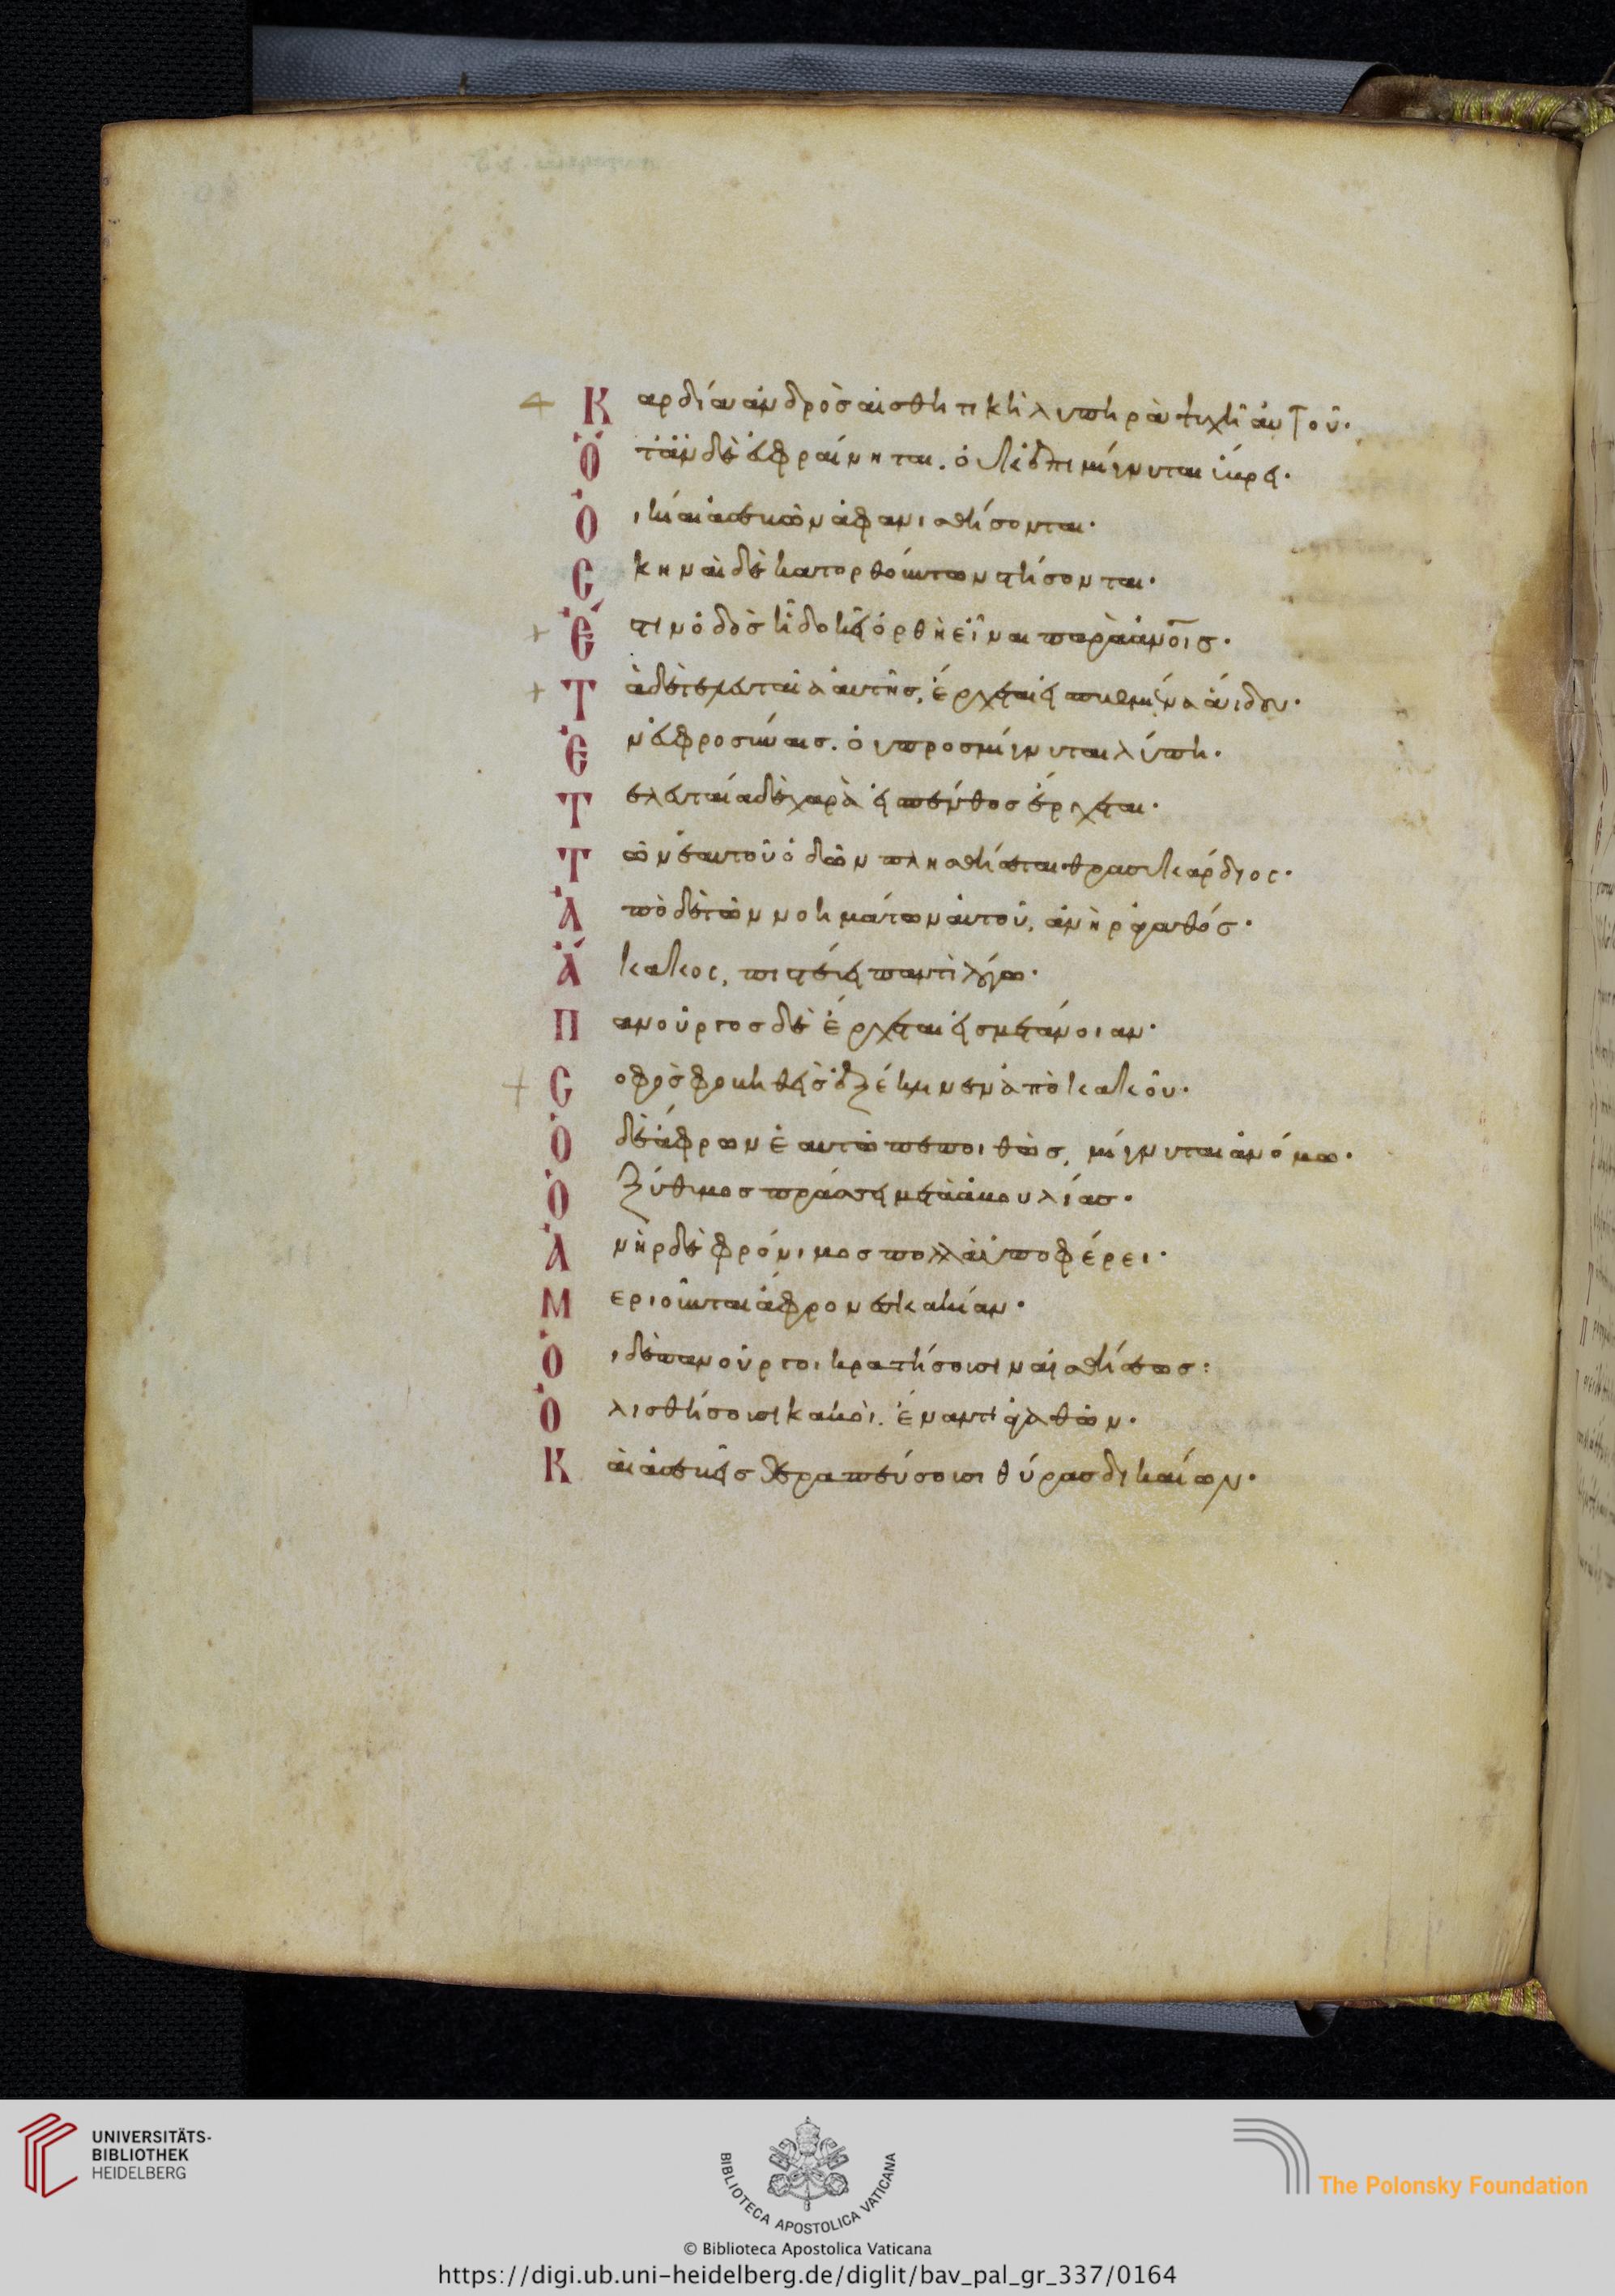 Καρδία ἀνδρὸς αἰσθητικὴ λυπηρὰ ψυχὴ ἀυτοῦ·
Ὅταν δὲ ἐυφραίνηται. ὀυκ ἐπιμίγνυται ὕβρει·
Ὀικίαι ἀσεβῶν ἀφανισθήσονται·
Σκηναὶ δὲ κατορθούντων στήσονται·
Ἔστιν ὁδὸς ἣ δοκεῖ ὀρθὴ εἶναι παρὰ ἀνοις·
Τὰ δὲ τελευταῖα ἀυτῆς, ἔρχεται εἰς πυθμένα ἅιδου·
Ἐν ἐυφροσύναις. ὀυ προσμίγνυται λύπη·
Τελευταία δὲ χαρὰ εἰς πένθος ἔρχεται·
Τῶν ἑαυτοῦ ὁδῶν πλησθήσεται θρασυκάρδιος·
Ἀπὸ δὲ τῶν νοημάτων ἀυτοῦ, ἀνὴρ ἀγαθός·
Ἄκακος, πιστεύει παντὶ λόγω·
Πανοῦργος δὲ ἔρχεται εἰς μετάνοιαν·
Σοφὸς φοβηθεὶς ἐξέκλινεν ἀπὸ κακοῦ·
Ὁ δὲ ἄφρων ἑαυτῶ πεποιθὼς, μίγνυται ἀνόμω·
Ὀξύθυμος πράσσει μετὰ ἀβουλίας·
Ἀνὴρ δὲ φρόνιμος πολλὰ ὑποφέρει·
Μεριοῦνται ἄφρονες κακίαν·
Ὁι δὲ πανοῦργοι κρατήσουσιν αἰσθήσεως:
Ὀλισθήσουσι κακοὶ. ἔναντι ἀγαθῶν·
Καὶ ἀσεβεῖς θεραπεύσουσι θύρας δικαίων·
UNIVERSITÄTS-
BIBLIOTHEK
HEIDELBERG
BIBLIOTECA APOSTOLICA VATICANA
The Polonsky Foundation
© Biblioteca Apostolica Vaticana
https://digi.ub.uni-heidelberg.de/diglit/bav_pal_gr_337/0164